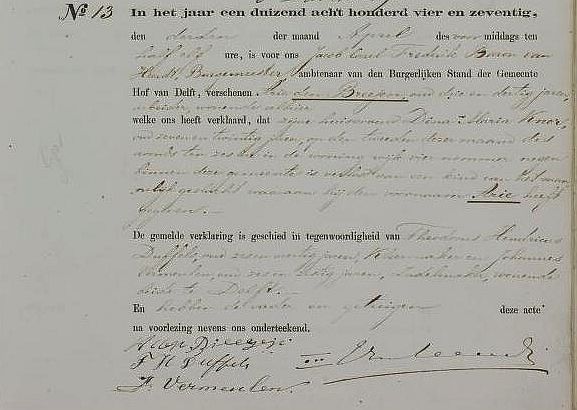 No 13 In het jaar een duizend acht honderd vier en zeventig,
den derden der maand April des voor middags ten
half elf ure, is voor ons Jacob Fredrik Baron van
Burgemeester, ambtenaar van den Burgerlijken Stand der Gemeente
Hof van Delft, verschenen Arie den Breejen, oud drie en dertig jaren,
arbeider, wonende alhier
welke ons heeft verklaard, dat zijne huisvrouw Dina Maria
oud zeven en twintig jaren, op den tweeden dezer maand des
avonds ten zes ure in de woning wijk vier nommer negen
binnen deze gemeente is verlost van een kind van het man-
nelijk geslacht waaraan hij den voornaam Arie heeft
gegeven.
De gemelde verklaring is geschied in tegenwoordigheid van Theodorus Hendricus
Duffels, oud zeven en veertig jaren, en Johannes
Vermeulen, oud zes en jaren, zadelmaker, wonende
beide te Delft.
En hebben de vader en getuigen deze acte
na voorlezing nevens ons onderteekend.
T H Duffels
J. Vermeulen.